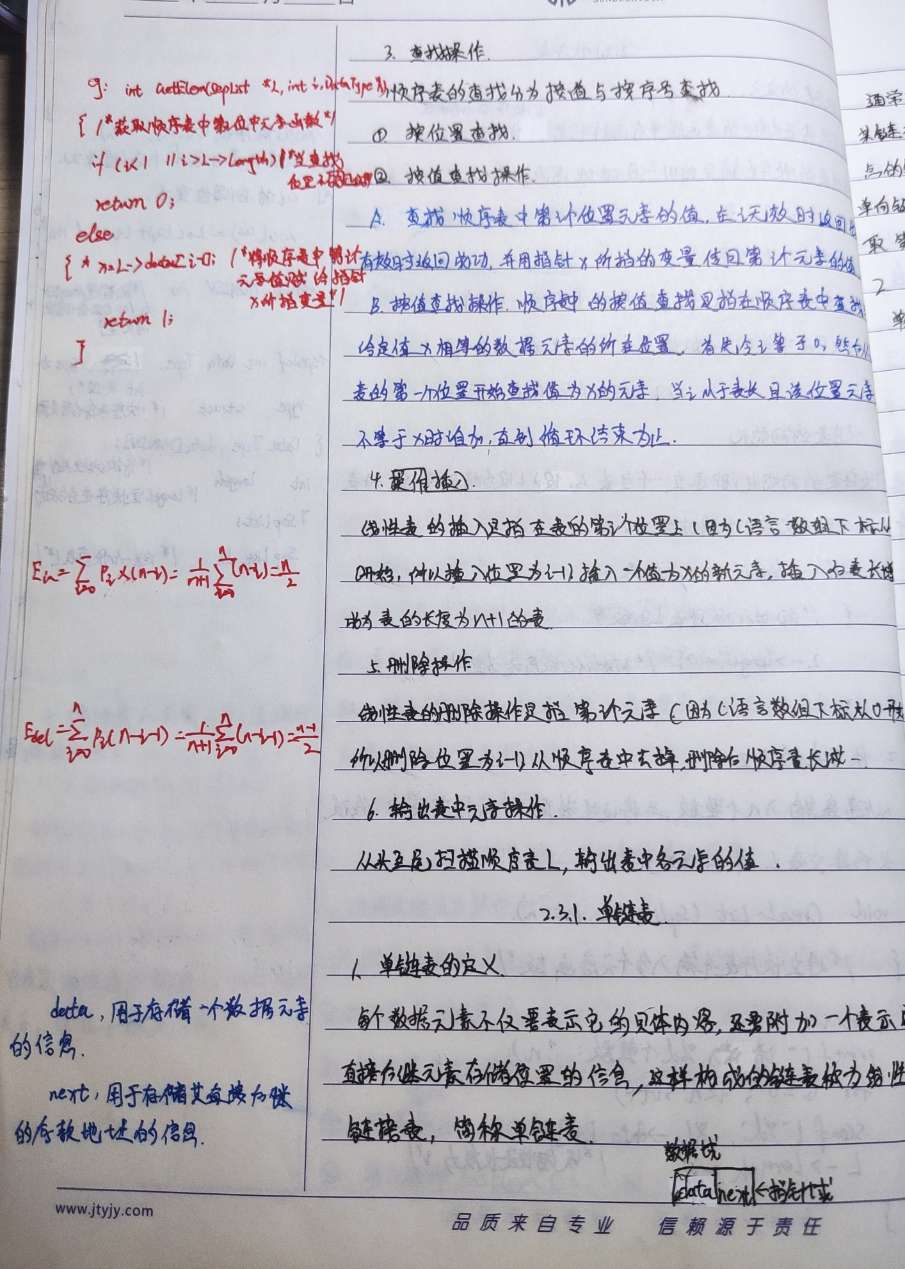 3. 查找操作.
顺序表的查找分为按值与按序号查找
① 按位置查找.
② 按值查找操作.
A. 查找顺序表中第i个位置元素的值, 在i无效时返回
有效时返回成功, 并用指针x所指的变量传回第i个元素的值
B. 按值查找操作. 顺序表中的按值查找是指在顺序表中查找
给定值x相等的数据元素的所在位置. 首先令i等于0, 然后从
表的第一个位置开始查找值为x的元素, 当i小于表长且该位置元素
不等于x时i自加, 直到循环结束为止.
4. 操作插入.
线性表的插入是指在表的第i个位置上 (因为C语言数组下标从
0开始, 所以插入位置为i-1) 插入一个值为x的新元素, 插入后表长增
成为表的长度为n+1的表.
5. 删除操作
线性表的删除操作是指第i个元素 (因为C语言数组下标从0开始
所以删除位置为i-1) 从顺序表中去掉, 删除后顺序表长减一.
6. 输出表中元素操作.
从头至尾扫描顺序表L, 输出表中各元素的值.
2.3.1. 单链表.
1. 单链表的定义.
每个数据元素不仅要表示它的具体内容, 还要附加一个表示
直接后继元素存储位置的信息, 这样构成的链表称为线性
链接表, 简称单链表.
数据域
data next ←指针域
例: int GetElem(SepList *L, int i, DataType *x)
{ /*获取顺序表中第i位中元素函数*/
if (i<1 || i>L->length) /*当查找
return 0;
else
{ *x=L->data[i-1]; /*将顺序表中第i个
元素值赋的指针
x所指变量*/
return 1;
}
Ein=∑(i=0, n) Pi×(n-i)= 1/(n+1) ∑(i=0, n)(n-i)= n/2
Edel=∑(i=0, n) Pi(n-i-1)= 1/(n+1) ∑(i=0, n)(n-i-1)= (n-1)/2
data, 用于存储一个数据元素
的信息.
next, 用于存储其直接后继
的存放地址的信息.
www.jtyjy.com
品质来自专业 信赖源于责任
通常
头链
点的
单向链
取
2